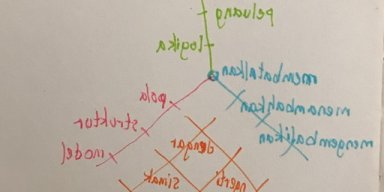 peluang
logika
membatalkan
menambahkan
mengembalikan
pola
struktur
model
dengar
simak